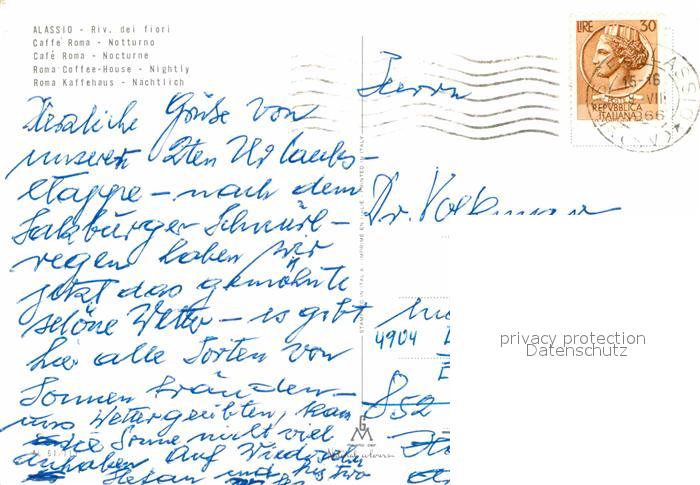 ALASSIO - Riv. dei fiori
Caffè Roma - Notturno
Café Roma - Nocturne
Roma Coffee-House - Nightly
Roma Kaffehaus - Nächtlich
Herzliche Grüße von
unserer 2ten Urlaubs-
etappe - nach dem
Salzburger Schnürl-
regen haben wir
jetzt das gewöhnte
schöne Wetter - es gibt
hier alle Sorten von
Sonnen
uns Wettergeübten, kann
die Sonne nicht viel
anhaben Auf Wiedersehn
Stefan und
STAMPATO IN ITALIA IMPRIMÉ EN ITALIE PRINTED IN ITALY
LIRE 30
REPVBBLICA
ITALIANA
ALASSIO
15-16
VIII
966
Herrn
Dr. Volkmann
4904
852
privacy protection
Datenschutz